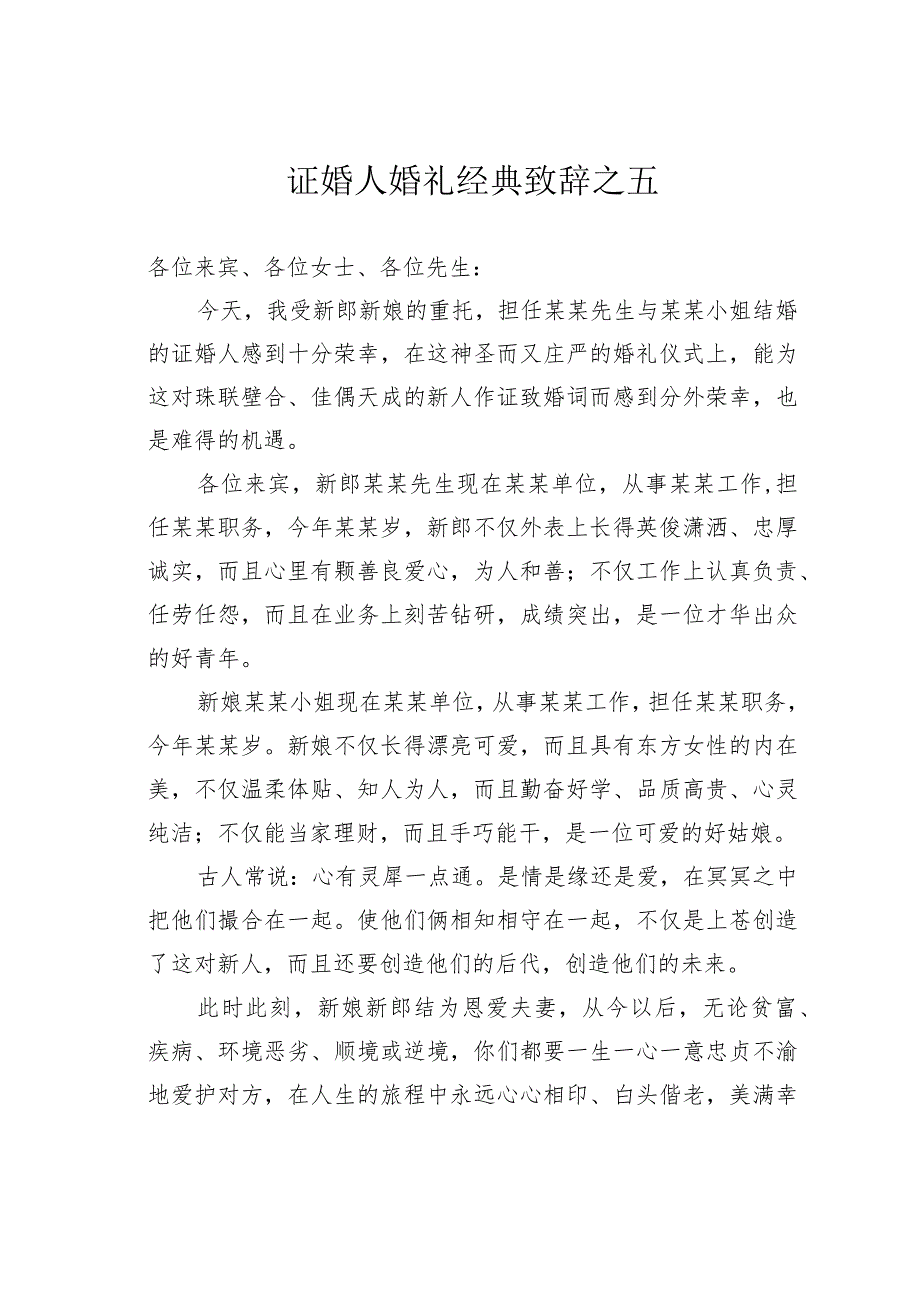 证婚人婚礼经典致辞之五
各位来宾、各位女士、各位先生：
今天，我受新郎新娘的重托，担任某某先生与某某小姐结婚
的证婚人感到十分荣幸，在这神圣而又庄严的婚礼仪式上，能为
这对珠联壁合、佳偶天成的新人作证致婚词而感到分外荣幸，也
是难得的机遇。
各位来宾，新郎某某先生现在某某单位，从事某某工作,担
任某某职务，今年某某岁，新郎不仅外表上长得英俊潇洒、忠厚
诚实，而且心里有颗善良爱心，为人和善；不仅工作上认真负责、
任劳任怨，而且在业务上刻苦钻研，成绩突出，是一位才华出众
的好青年。
新娘某某小姐现在某某单位，从事某某工作，担任某某职务，
今年某某岁。新娘不仅长得漂亮可爱，而且具有东方女性的内在
美，不仅温柔体贴、知人为人，而且勤奋好学、品质高贵、心灵
纯洁；不仅能当家理财，而且手巧能干，是一位可爱的好姑娘。
古人常说：心有灵犀一点通。是情是缘还是爱，在冥冥之中
把他们撮合在一起。使他们俩相知相守在一起，不仅是上苍创造
了这对新人，而且还要创造他们的后代，创造他们的未来。
此时此刻，新娘新郎结为恩爱夫妻，从今以后，无论贫富、
疾病、环境恶劣、顺境或逆境，你们都要一生一心一意忠贞不渝
地爱护对方，在人生的旅程中永远心心相印、白头偕老，美满幸